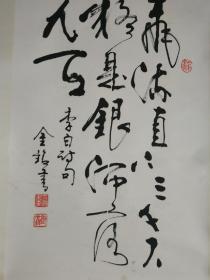 飛流直下三千尺
疑是銀河落
九天
李白詩句
書